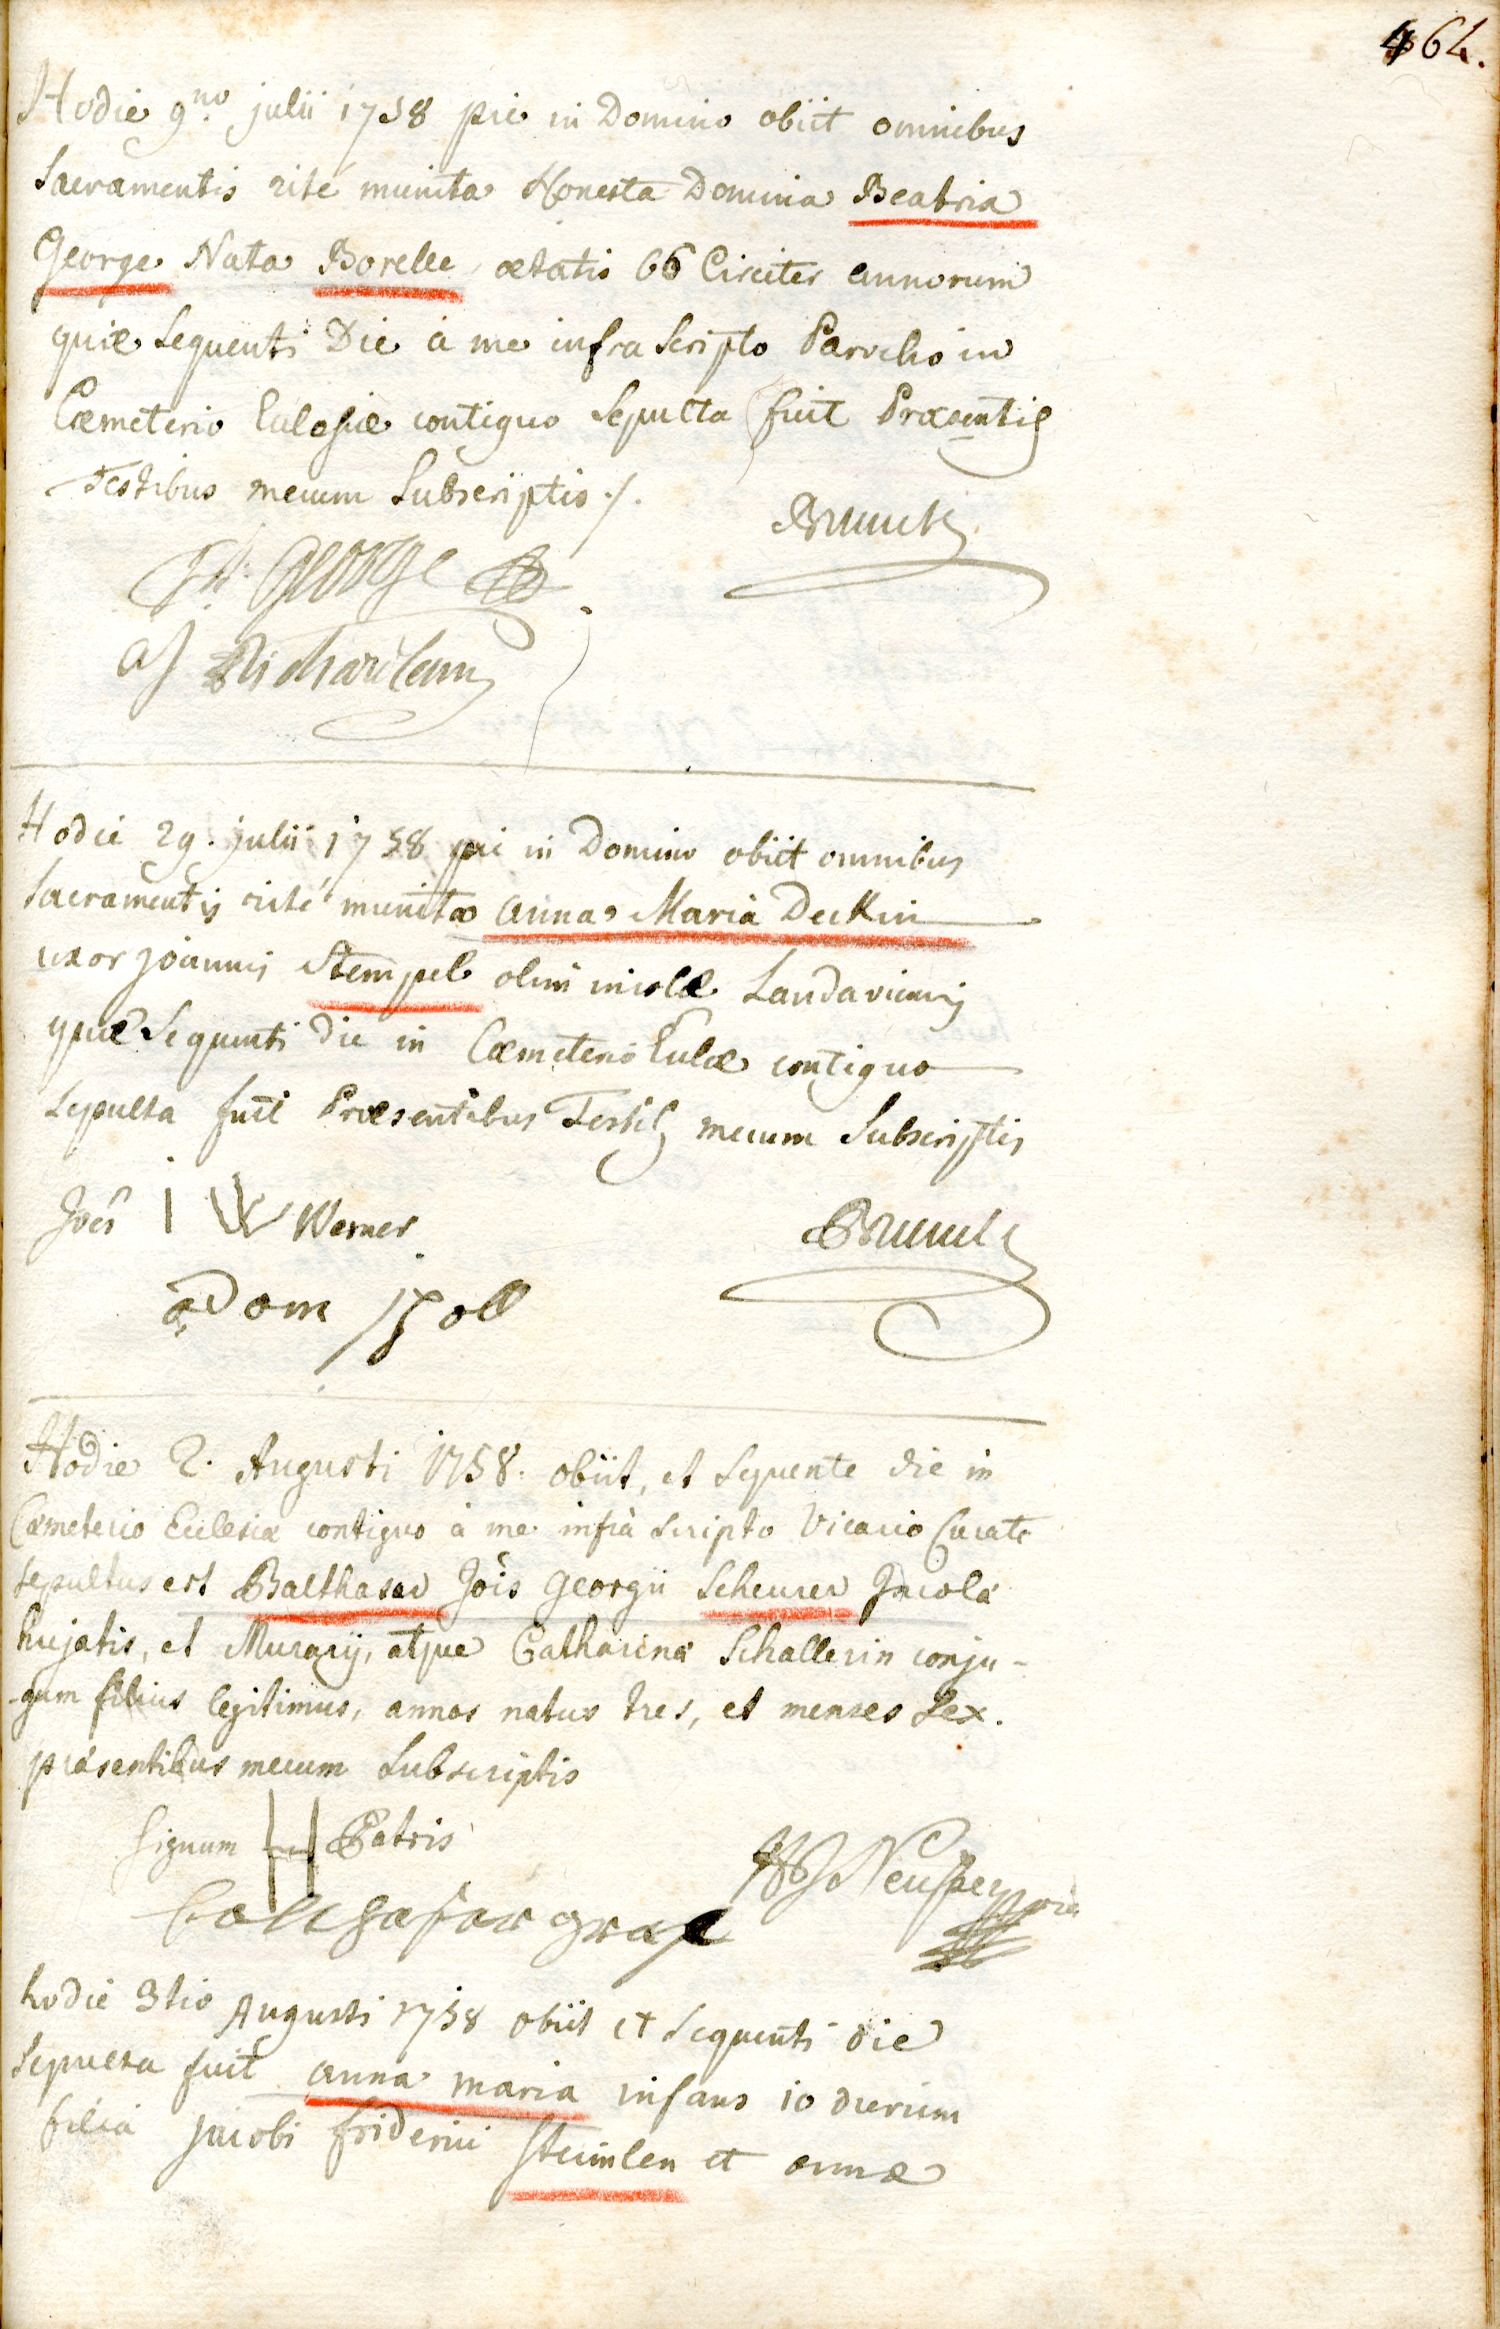 464.
Hodie 9no. julii 1758 pie in Domino obiit omnibus
Sacramentis rité munita Honesta Domina Beatria
George Nata Borelle ætatis 66 Circiter annorum
quiæ Sequenti Die á me infra Scripto Parocho in
Cœmeterio Eclesiæ contiguo Sepulta fuit Præsentib
Testibus mecum Subscriptis ./.
Brunck
George
Hodie 29. julii 1758 pie in Domino obiit omnibus
Sacramentis rité munita Anna Maria Deckin
uxor Joannis Stempel olim incolæ Landaviensis
quæ Sequenti Die in Cœmeterio Eclæ contiguo
Sepulta fuit Præsentibus Testib mecum Subscriptis
Joës I W Werner
Brunck
adam Joll
Hodie 2. Augusti 1758. obiit, et Sequente die in
Cœmeterio Ecclesiæ contiguo à me infrà Scripto Vicario Curato
Sepultus est Balthasar Jois Georgii Scheurer Jncola
hujatis, et Murarij, atque Catharina Schallerin conju-
-gum filius legitimus, annos natus tres, et menses Sex.
præsentibus mecum Subscriptis
Signum H Patris
Balthasar graf
hodie 3tio Augusti 1758 obiit et Sequenti die
Sepulta fuit anna maria infans 10 dierum
filia Jacobi friderici Steimlen et annæ